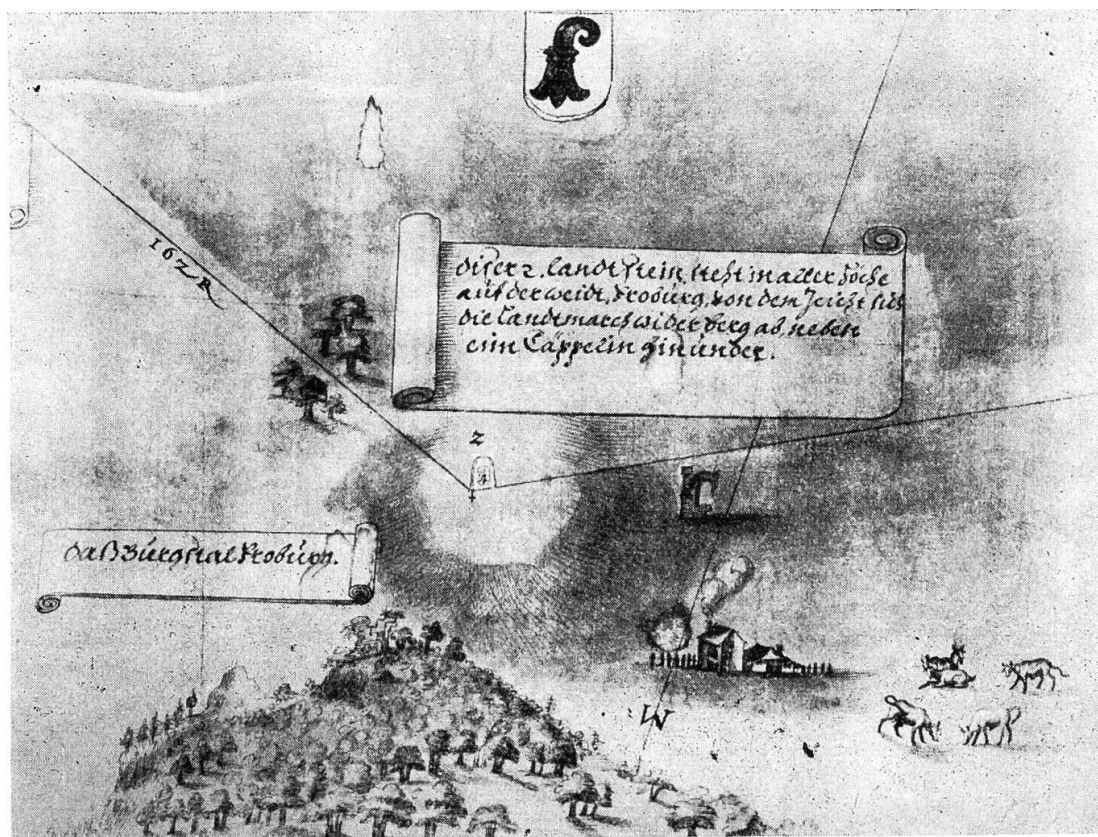 162 R
diser 2. landt stein, steht in aller höche
auf der weidt, froburg, von dem
die landtmarch wider berg ab neben
eim Cäppelin hinunder.
2
daß Burgstal froburg.
W